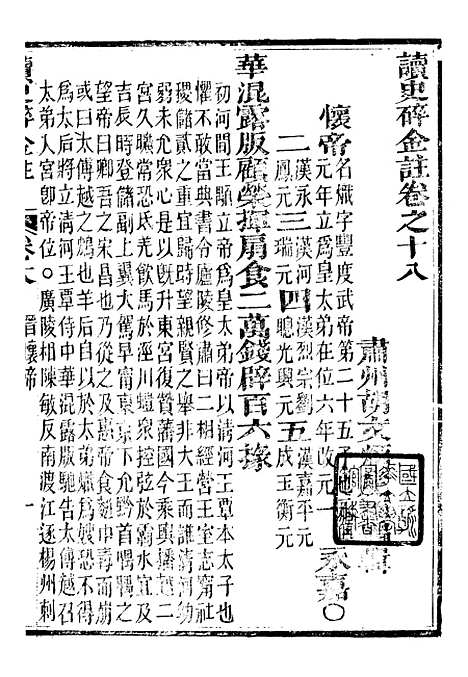 讀史碎金註卷之十八
肅州胡文輯
懷帝 名熾字豐度武帝第二十五子
元年立爲皇太弟在位六年改元一 永嘉〇
二 漢永鳳元 三 漢河瑞元 四 漢烈宗劉聰光興元 五 漢嘉平元成玉衡元
華混露版顧榮揮扇食二萬錢辟百六掾
初河間王顒立帝爲皇太弟帝以清河王覃本太子也
懼不敢當典書令廬陵修肅曰二相經營王室志甯社
稷儲貳之重宜歸時望親賢之舉非大王而誰清河幼
弱未允衆心是以旣升東宮復贊藩國今乘輿播越二
宮久曠常恐氐羌飲馬於涇川螘衆控弦於霸水宜及
吉辰時登儲副上翼大駕早甯東京下允黔首喁喁之
望帝曰卿吾之宋昌也乃從之及惠帝食䴵中毒而崩
或曰太傅越之鴆也羊后自以於太弟爲嫂恐不得
爲太后將立清河王覃侍中華混露版馳告太傅越召
太弟入宮卽帝位〇廣陵相陳敏反南渡江逐楊州刺
讀史碎金註 卷十八 晉懷帝 一